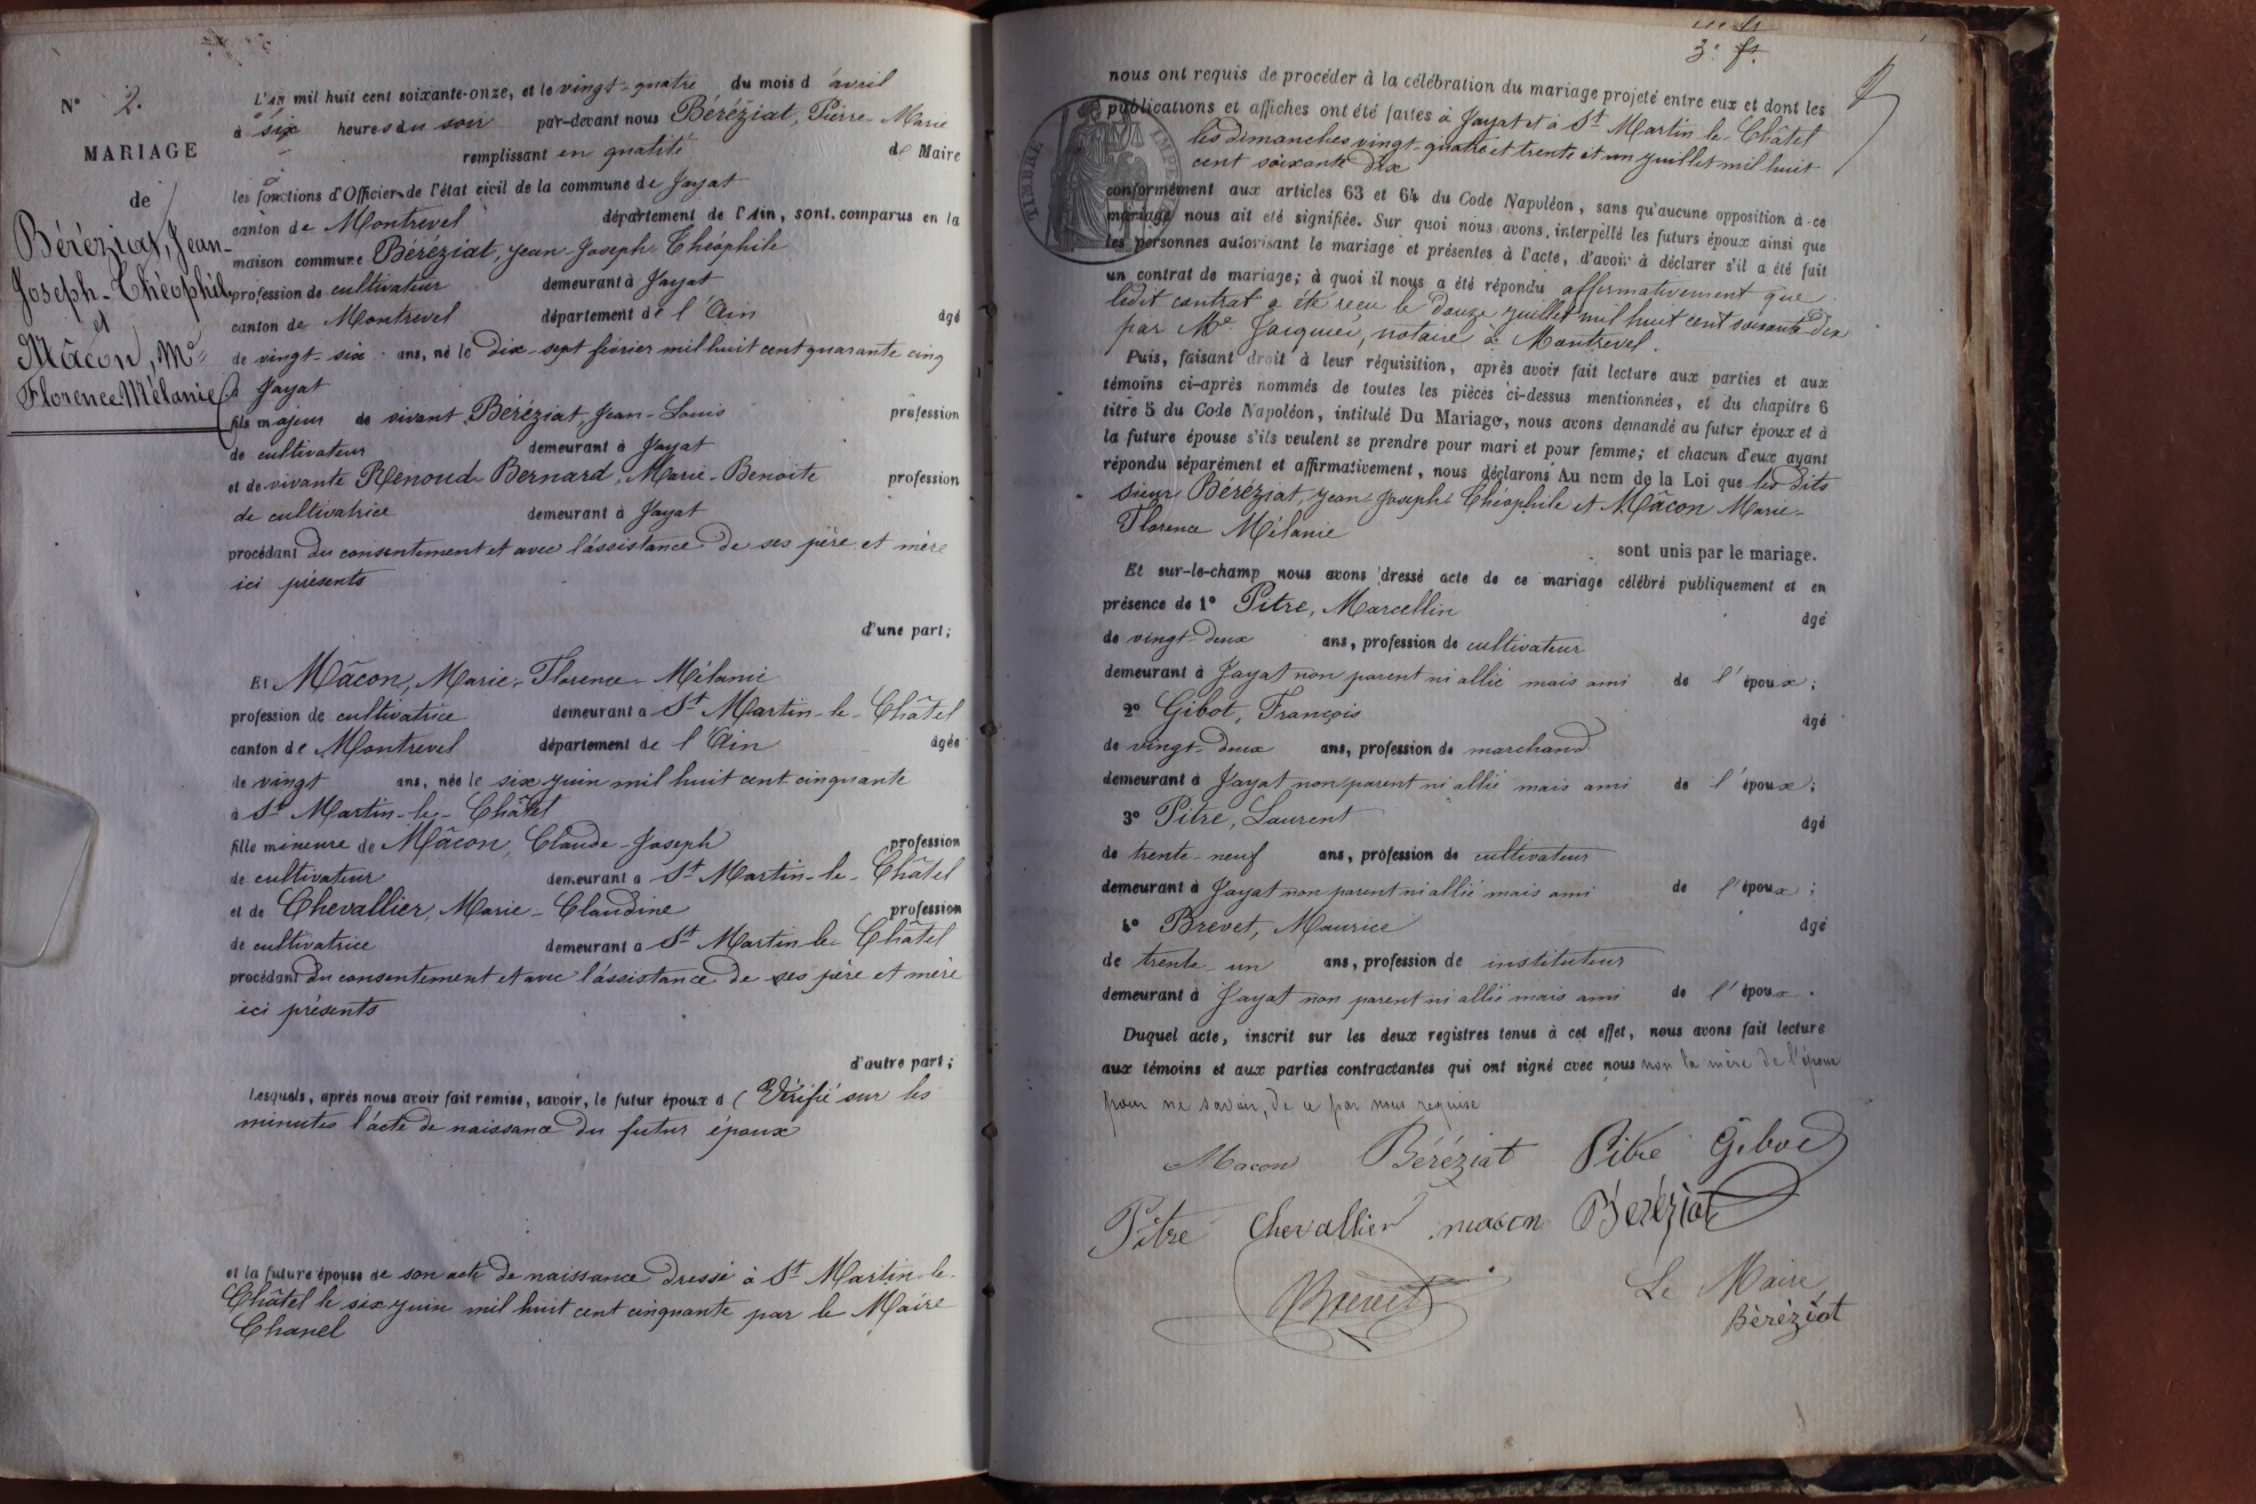 N° 2.
MARIAGE
de
Béréziat, Jean-
Joseph-Théophile
et
Mâcon, Mie
Florence Mélanie
L'an mil huit cent soixante-onze, et le vingt-quatre du mois d'avril
à six heures du soir par-devant nous Béréziat, Pierre-Marie
remplissant en qualité de Maire
les fonctions d'Officier de l'état civil de la commune de Jayat
canton de Montrevel département de l'Ain, sont comparus en la
maison commune Béréziat, Jean-Joseph-Théophile
profession de cultivateur demeurant à Jayat
canton de Montrevel département de l'Ain âgé
de vingt-six ans, né le dix-sept février mil huit cent quarante cinq
à Jayat
fils majeur de vivant Béréziat, Jean-Louis profession
de cultivateur demeurant à Jayat
et de vivante Renoud-Bernard, Marie-Benoite profession
de cultivatrice demeurant à Jayat
procédant du consentement et avec l'assistance de ses père et mère
ici présents
d'une part;
Et Mâcon, Marie-Florence-Mélanie
profession de cultivatrice demeurant à St Martin-le-Châtel
canton de Montrevel département de l'Ain âgée
de vingt ans, née le six juin mil huit cent cinquante
à St Martin-le-Châtel
fille mineure de Mâcon, Claude-Joseph profession
de cultivateur demeurant à St Martin-le-Châtel
et de Chevallier, Marie-Claudine profession
de cultivatrice demeurant à St Martin-le-Châtel
procédant du consentement et avec l'assistance de ses père et mère
ici présents
d'autre part;
Lesquels, après nous avoir fait remise, savoir, le futur époux d (Vérifié sur les
minutes l'acte de naissance du futur époux
et la future épouse de son acte de naissance dressé à St Martin-le-
Châtel le six juin mil huit cent cinquante par le Maire
Chanel
3e ft.
nous ont requis de procéder à la célébration du mariage projeté entre eux et dont les
publications et affiches ont été faites à Jayat et à St Martin-le-Châtel
les dimanches vingt-quatre et trente et un juillet mil huit
cent soixante dix
conformément aux articles 63 et 64 du Code Napoléon, sans qu'aucune opposition à ce
mariage nous ait été signifiée. Sur quoi nous avons interpellé les futurs époux ainsi que
les personnes autorisant le mariage et présentes à l'acte, d'avoir à déclarer s'il a été fait
un contrat de mariage; à quoi il nous a été répondu affirmativement que
ledit contrat a été reçu le douze juillet mil huit cent soixante-dix
par Me Jacquier, notaire à Montrevel.
Puis, faisant droit à leur réquisition, après avoir fait lecture aux parties et aux
témoins ci-après nommés de toutes les pièces ci-dessus mentionnées, et du chapitre 6
titre 5 du Code Napoléon, intitulé Du Mariage, nous avons demandé au futur époux et à
la future épouse s'ils veulent se prendre pour mari et pour femme; et chacun d'eux ayant
répondu séparément et affirmativement, nous déclarons Au nom de la Loi que les dits
sieur Béréziat, Jean-Joseph-Théophile et Mâcon Marie-
Florence Mélanie
sont unis par le mariage.
Et sur-le-champ nous avons dressé acte de ce mariage célébré publiquement et en
présence de 1° Pitre, Marcellin âgé
de vingt-deux ans, profession de cultivateur
demeurant à Jayat non parent ni allié mais ami de l'époux;
2° Gibot, François âgé
de vingt-deux ans, profession de marchand
demeurant à Jayat non parent ni allié mais ami de l'époux;
3° Pitre, Laurent âgé
de trente-neuf ans, profession de cultivateur
demeurant à Jayat non parent ni allié mais ami de l'époux;
4° Brevet, Maurice âgé
de trente-un ans, profession de instituteur
demeurant à Jayat non parent ni allié mais ami de l'époux.
Duquel acte, inscrit sur les deux registres tenus à cet effet, nous avons fait lecture
aux témoins et aux parties contractantes qui ont signé avec nous non la mère de l'époux
pour ne savoir, de ce par nous requise
Macon Béréziat Pitre Gibot
Pitre Chevallier macon Béréziat
Brevet Le Maire
Béréziat
TIMBRE IMPE